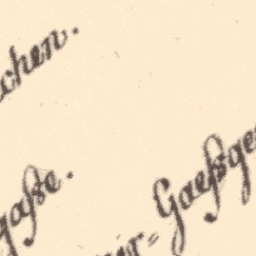 chen.
gaſse.
ur= Gaeſsge